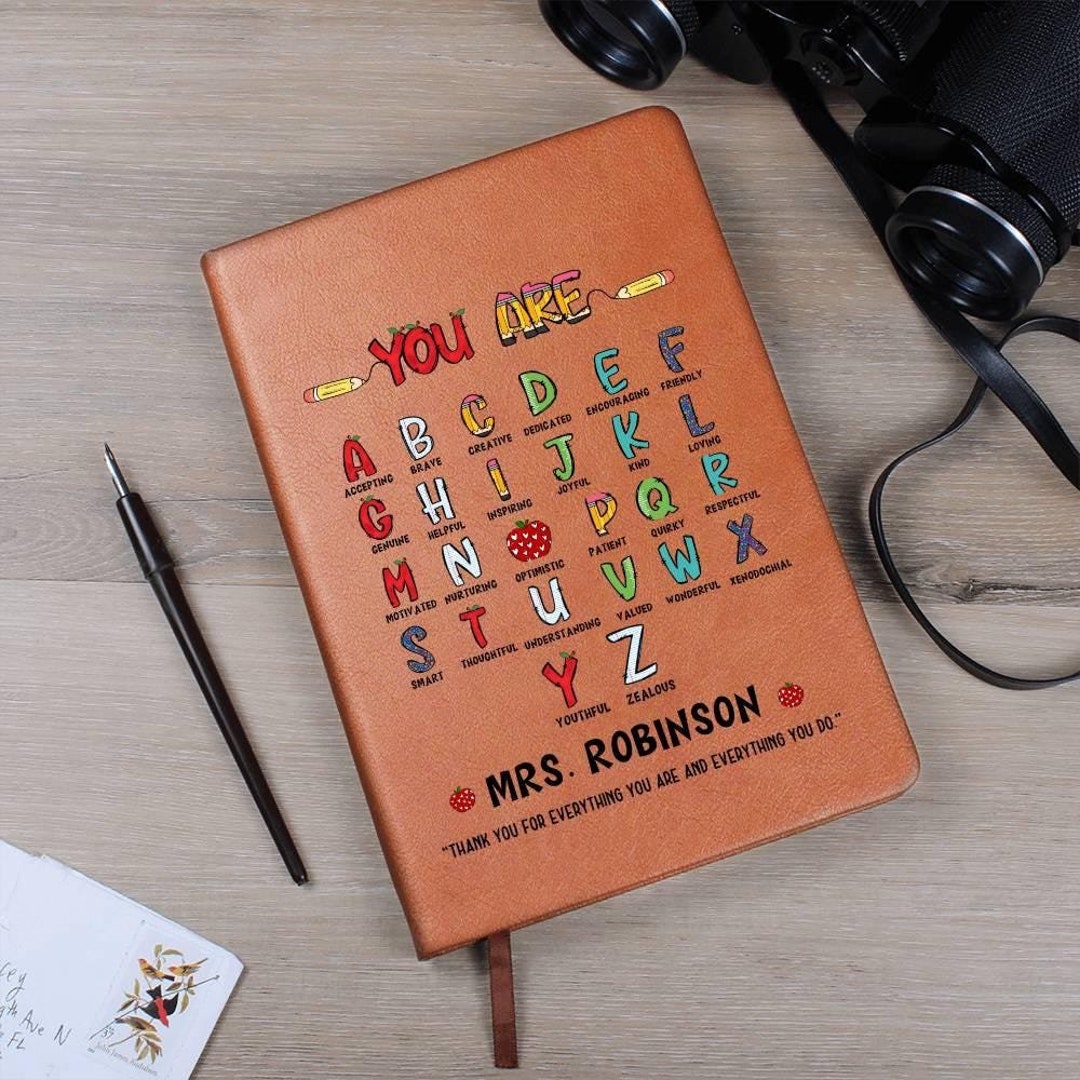 YOU ARE
A B C D E F
ACCEPTING BRAVE CREATIVE DEDICATED ENCOURAGING FRIENDLY
G H I J K L
GENUINE HELPFUL INSPIRING JOYFUL KIND LOVING
M N P Q R
MOTIVATED NURTURING OPTIMISTIC PATIENT QUIRKY RESPECTFUL
S T U V W X
SMART THOUGHTFUL UNDERSTANDING VALUED WONDERFUL XENODOCHIAL
Y Z
YOUTHFUL ZEALOUS
MRS. ROBINSON
"THANK YOU FOR EVERYTHING YOU ARE AND EVERYTHING YOU DO."
Ave N
FL
37
John James Audubon